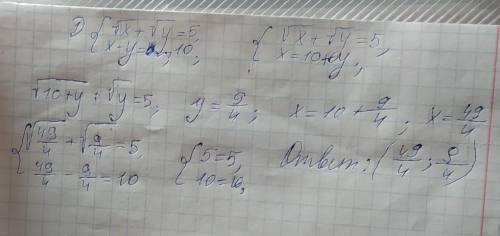 2) { √x + √y = 5, x - y = 10, { √x + √y = 5, x = 10 + y,
√10+y + √y = 5, y = 9/4; x = 10 + 9/4; x = 49/4
{ √49/4 + √9/4 = 5 49/4 - 9/4 = 10 { 5 = 5, 10 = 10, Ответ: (49/4; 9/4)